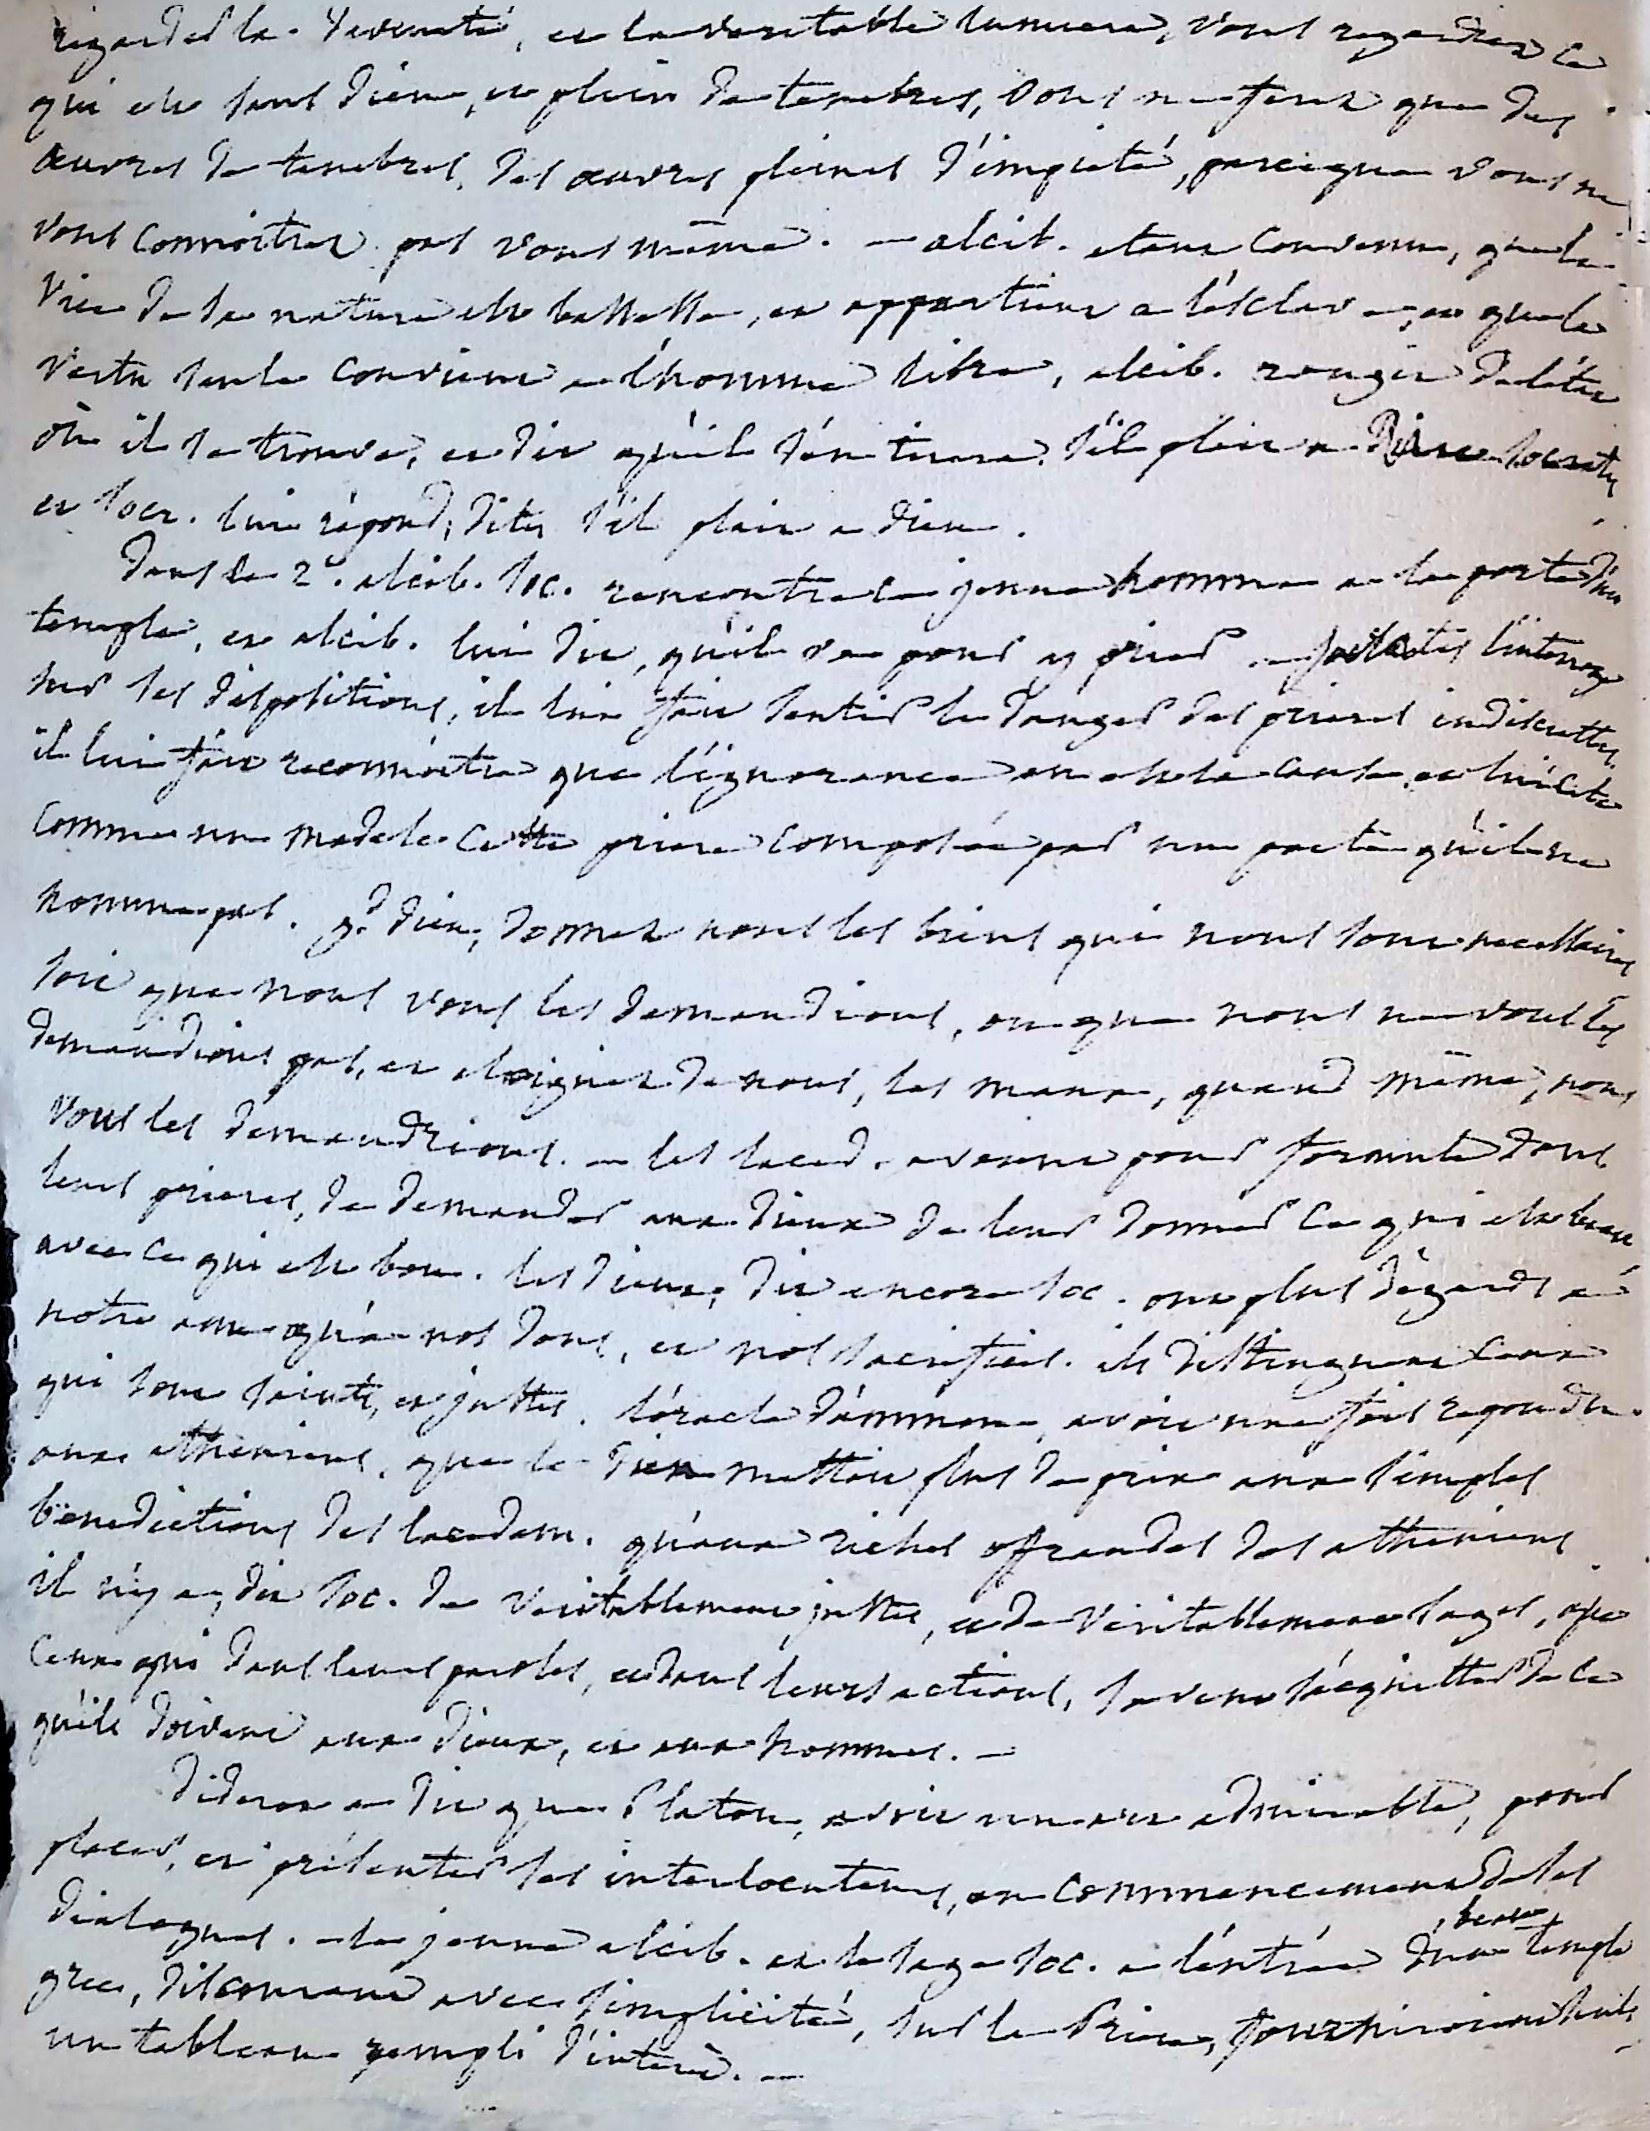 regardes la divinité, et la veritable lumiere, vous regardres ce
qui est sans dieu, et plein de tenebres, vous ne feres que des
œuvres de tenebres, des œuvres pleines d'impieté, parceque vous ne
vous connoitres pas vous même. — alcib. etant convenu, que le
vice de sa nature est bassesse, et appartient a l'esclave, et que la
vertu seule convient a l'homme libre, alcib. rougit de l'état
où il se trouve, et dit qu'il s'en tirera s'il plait a Socrate,
et socr. lui répond, dites s'il plait a dieu.
Dans le 2e. alcib. soc. rencontre le jeune homme a la porte d'un
temple, et alcib. lui dit, qu'il va pour y prier — Socrates l'interroge
sur ses dispositions, il lui fait sentir le danger des prieres indiscrettes,
il lui fait reconnoitre que l'ignorance en est la cause et lui cite
comme un modele cette priere composée par un poete qu'il ne
nomme pas. gd. dieu, donnez nous les biens qui nous sont necessaires
soit que nous vous les demandions, ou que nous ne vous les
demandions pas, et eloignez de nous, les maux, quand même, nous
vous les demandrions. — les laced. avoient pour formule dans
leurs prieres, de demander aux dieux de leur donner ce qui est beau
avec ce qui est bon. les dieux, dit encore soc. ont plus d'égards a
notre ame qu'a nos dons, et nos sacrifices. ils distinguent ceux
qui sont saints, et justes. l'oracle d'ammon, avoit une fois repondu
aux atheniens, que le dieu mettoit plus de prix aux simples
benedictions des lacedem. qu'aux riches offrandes des atheniens
il n'y a, dit soc. de veritablement justes, et de veritablement sages, que
ceux qui dans leurs paroles, et dans leurs actions, savent s'acquitter de ce
qu'ils doivent aux dieux, et aux hommes. —
Diderot a dit que Platon, avoit un art admirable, pour
placer, et présenter ses interlocuteurs, au commencement de ses
dialogues. — le jeune alcib. et le sage soc. a l'entrée d'un beau temple
grec, discourant avec simplicité, sur la Priere, fourniroient seuls
un tableau rempli d'interêt. —